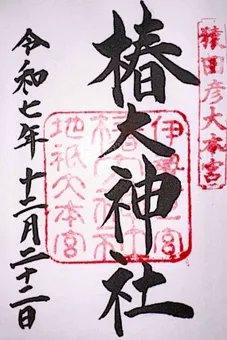 猿田彦大本宮
椿大神社
伊勢一宮
椿大神社
地祇大本宮
令和七年十二月二十二日